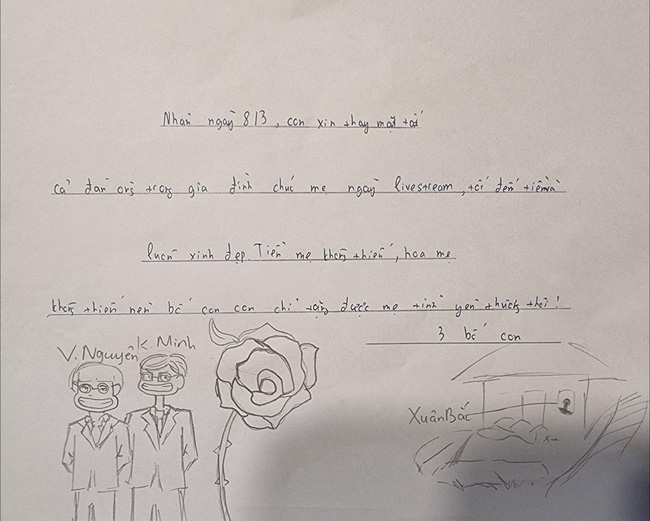 Nhân ngày 8/3, con xin thay mặt tất
cả đàn ông trong gia đình chúc mẹ ngày livestream, tối đếm tiền và
luôn xinh đẹp. Tiền mẹ không thiếu, hoa mẹ
không thiếu nên bố con con chỉ tặng được mẹ tình yêu thương thôi!
3 bố con
V. Nguyên K Minh
Xuân Bắc